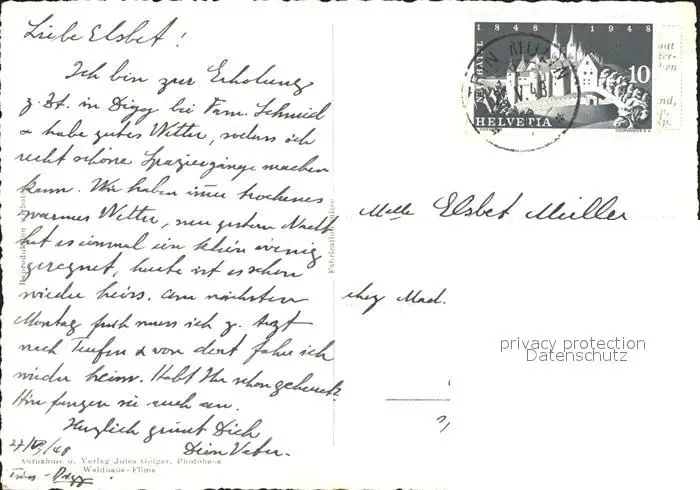 Liebe Elsbet!
Ich bin zur Erholung
z. Zt. in Digg bei Fam. Schmid
& habe gutes Wetter, sodass ich
recht schöne Spaziergänge machen
kann. Wir haben immer trockenes
warmes Wetter, nur gestern Nacht
hat es einmal ein klein wenig
geregnet, heute ist es schon
wieder heiss. Am nächsten
Montag früh muss ich z. Arzt
nach Teufen & von dort fahre ich
wieder heim. Habt Ihr schon geheuet?
Hier fangen sie auch an.
Herzlich grüsst Dich
Dein Vater.
27/V/48
Aufnahme u. Verlag Jules Geiger, Photohaus
Waldhaus-Flims
Trins - Digg
Fabrication Suisse
1848 1948
NEUCHÂTEL
10
HELVETIA
COURVOISIER S.A.
V.48
Melle Elsbet Müller
chez Mad.
privacy protection
Datenschutz